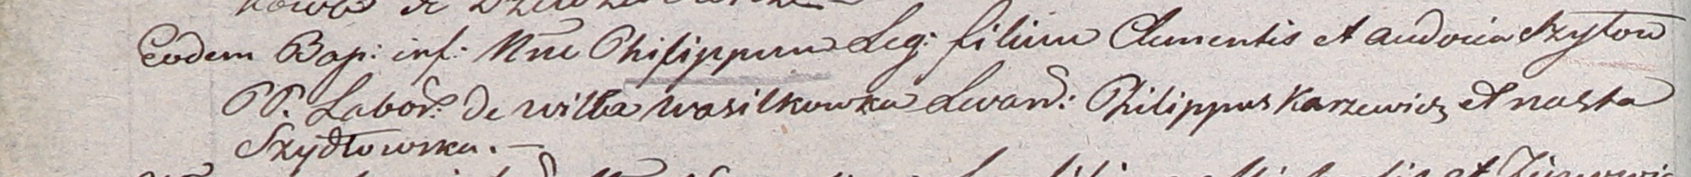 de
Eodem Bap: inf: Nne Philippum Leg: filium Clementis et Audocia Szyłow
PP. Labor. de villa Wasilkowka Levan: Philippus Karzewicz et Nasta
Szydłowska. —
et